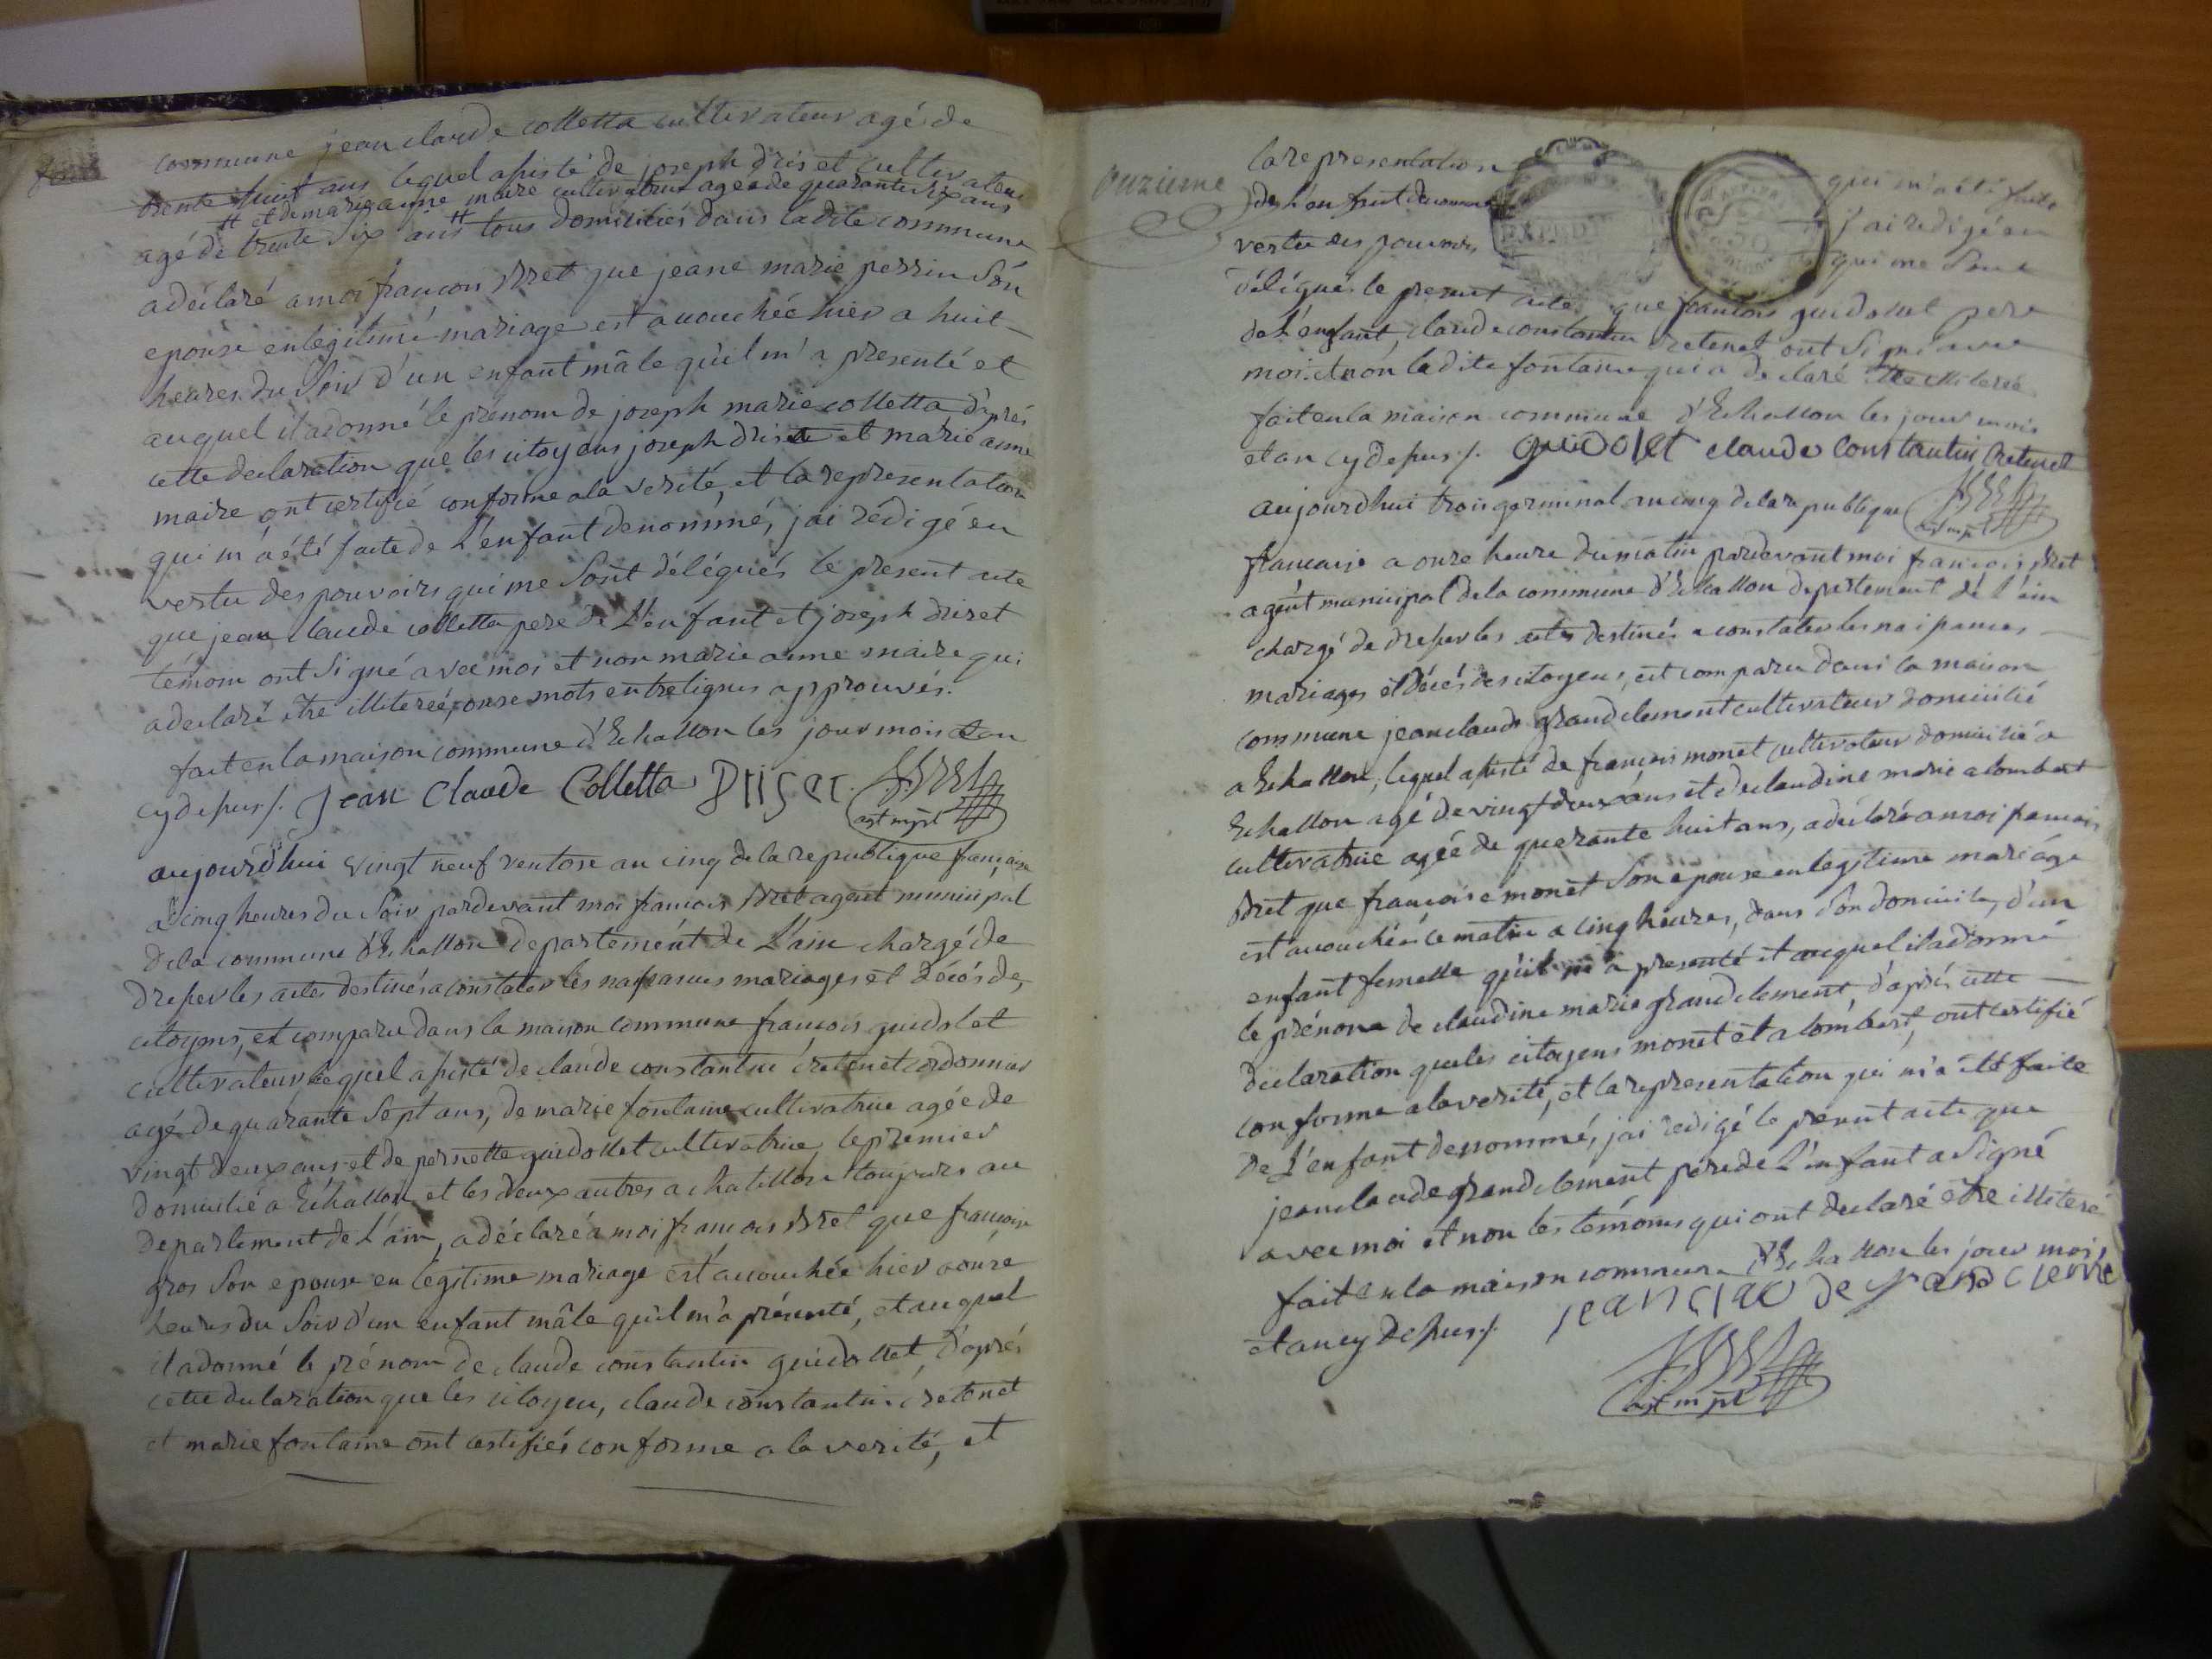 commune jean claude colletta cultivateur agé de
trente huit ans lequel assisté de joseph driset cultivateur
# et de marie anne maire cultivatrice agée de quarante six ans
agé de trente six ans # tous domiciliés dans ladite commune
a déclaré a moi francois Sret que jeane marie perrin Son
epouse en légitime mariage est acouchée hier a huit
heures du Soir d'un enfant mâle qu'il m'a presenté et
auquel il a donné le prénom de joseph marie colletta d'aprés
cette declaration que les citoyens joseph driset et marie anne
maire ont certifié conforme a la verité, et la representation
qui m'a été faite de L'enfant denommé, jai rédigé en
vertu des pouvoirs qui me Sont délégués le present acte
que jean claude colletta pere de L'enfant et joseph driset
témoin ont Signé avec moi et non marie anne maire qui
a declaré être illiterée, onze mots entrelignes approuvés.
fait en la maison commune d'Echallon les jour mois et an
cy depus /. Jean Claude Colletta Driset
agt mpl
aujourd'hui vingt neuf ventose an cinq de la republique francaise
a cinq heures du Soir pardevant moi francois Sret agent municipal
de la commune d'Echallon departement de L'ain chargé de
dresser les actes destinés a constater les naissances mariages et décés des
citoyens, est comparu dans la maison commune francois guidolet
cultivateur, lequel assisté de claude constantin cretenet cordonnier
agé de quarante Sept ans, de marie fontaine cultivatrice agée de
vingt deux ans et de pernette guidollet cultivatrice, le premier
domicilié a Echallon et les deux autres a chatillon toujours au
departement de L'ain, a déclaré a moi francois Sret que francoise
gros Son epouse en legitime mariage est acouchée hier a onze
heures du Soir d'un enfant mâle qu'il m'a présenté, et auquel
il a donné le prénom de claude constantin guidollet, d'aprés
cette declaration que les citoyen, claude constantin cretenet
et marie fontaine ont certifiés conforme a la verité, et
onzieme
la representation qui m'a été faite
de L'enfant denommé j'ai redigé en
vertu des pouvoirs qui me Sont
délégués le present acte que francois guidolet pere
de L'enfant, claude constantin cretenet ont Signé avec
moi et non la dite fontaine qui a declaré être illiterée
fait en la maison commune d'Echallon les jour mois
et an cy depus /. guidolet claude Constantin Cretenet
agt mpl
aujourdhui trois germinal an cinq de la republique
francaise a onze heure du matin pardevant moi francois Sret
agent municipal de la commune d'Echallon departement de L'ain
chargé de dresser les actes destinés a constater les naissances
mariages et décés des citoyens, est comparu dans la maison
commune jean claude grandclement cultivateur domicilié
a Echallon, lequel assisté de francois monet cultivateur domicilié a
Echallon agé de vingt deux ans et de claudine marie alombert
cultivatrice agée de quarante huit ans, a déclaré a moi francois
Sret que francoise monet Son epouse en legitime mariage
est acouchée ce matin a cinq heures, dans Son domicile, d'un
enfant femelle qu'il m'a presenté et auquel il a donné
le prénom de claudine marie grandclement, d'aprés cette
declaration que les citoyens monet et alombert, ont certifié
conforme a la verité, et la representation qui m'a été faite
de L'enfant denommé, jai redigé le present acte que
jean claude grandclement pere de L'enfant a Signé
avec moi et non les temoins qui ont declaré être illiteré
fait en la maison commune d'Echallon les jour mois
et an cy depus /.
agt mpl